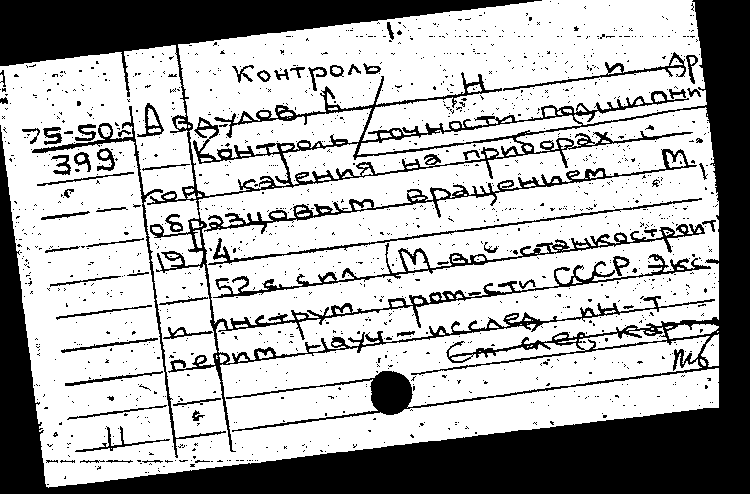 1.
Контроль
75-50
399
Авдулов, А Н и др
Контроль точности подшипни
ков качения на приборах с
образцовым вращением. М.,
1974.
52 с. с ил. (М-во станкостроит
и инструм. пром-сти СССР. Экс-
перим. науч.-исслед. ин-т
См след. карт.
11